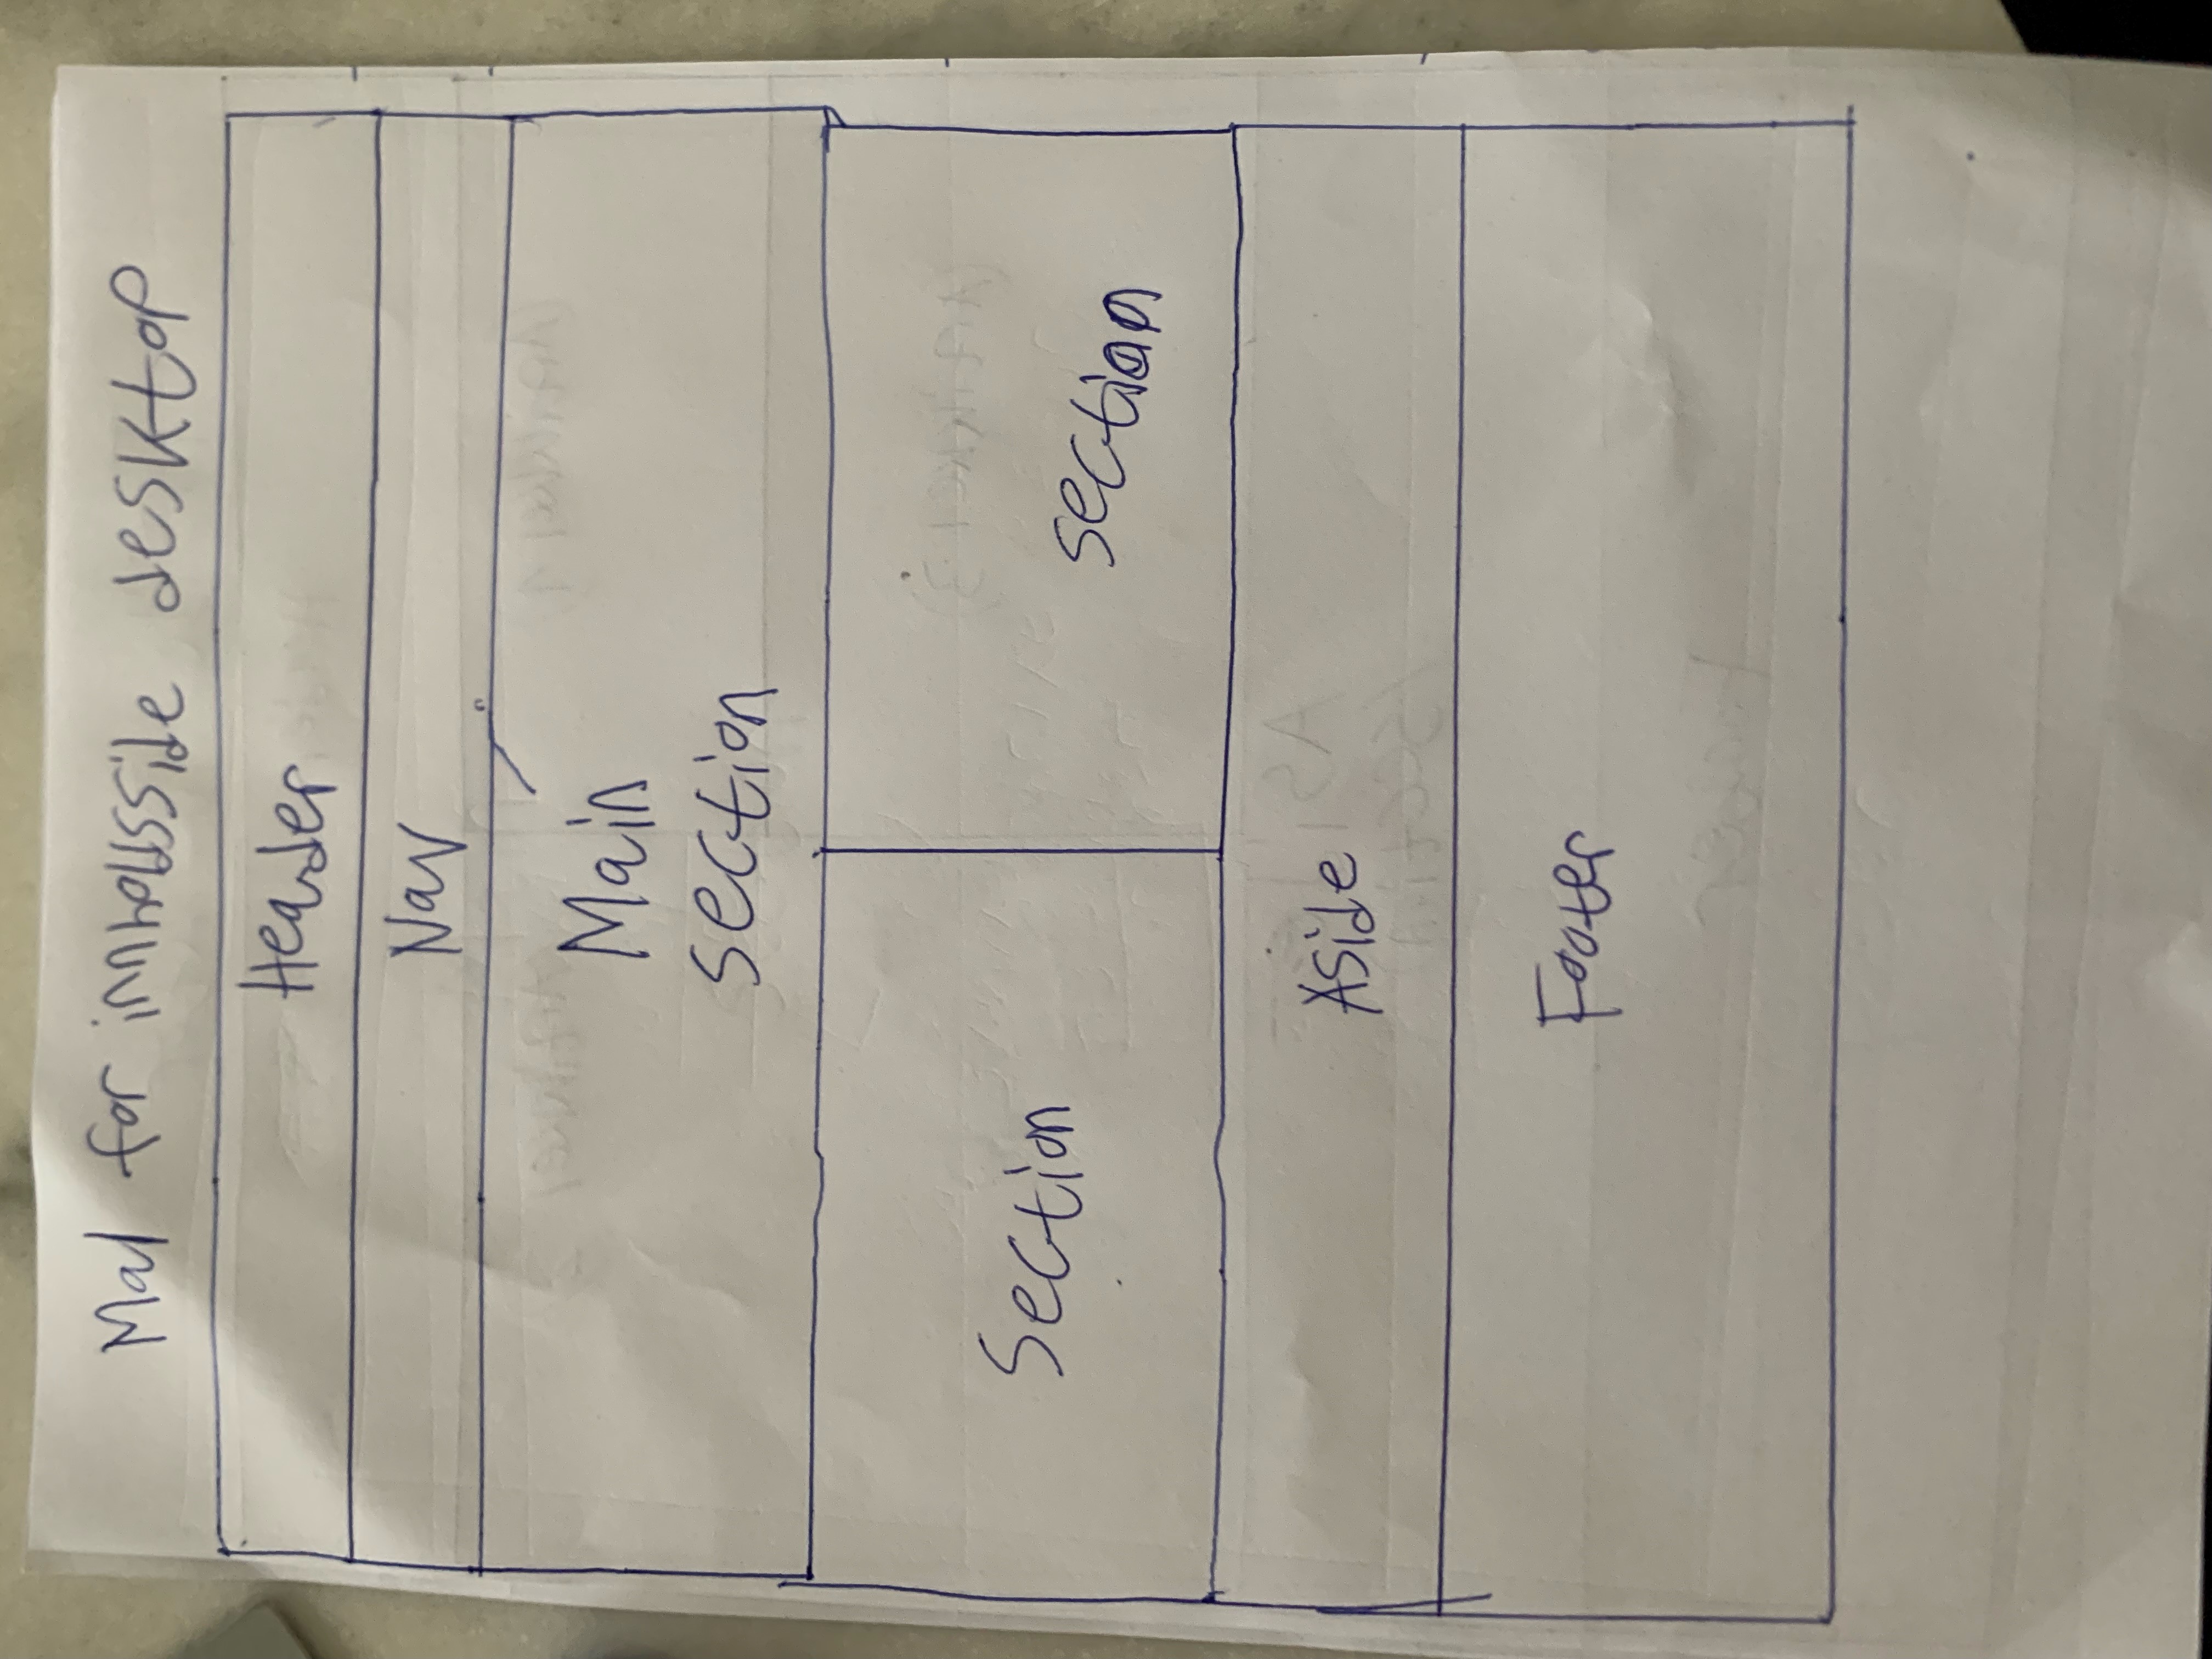 Mal for innholdsside desktop
Header
Nav
Main
section
Section
section
Aside
Footer